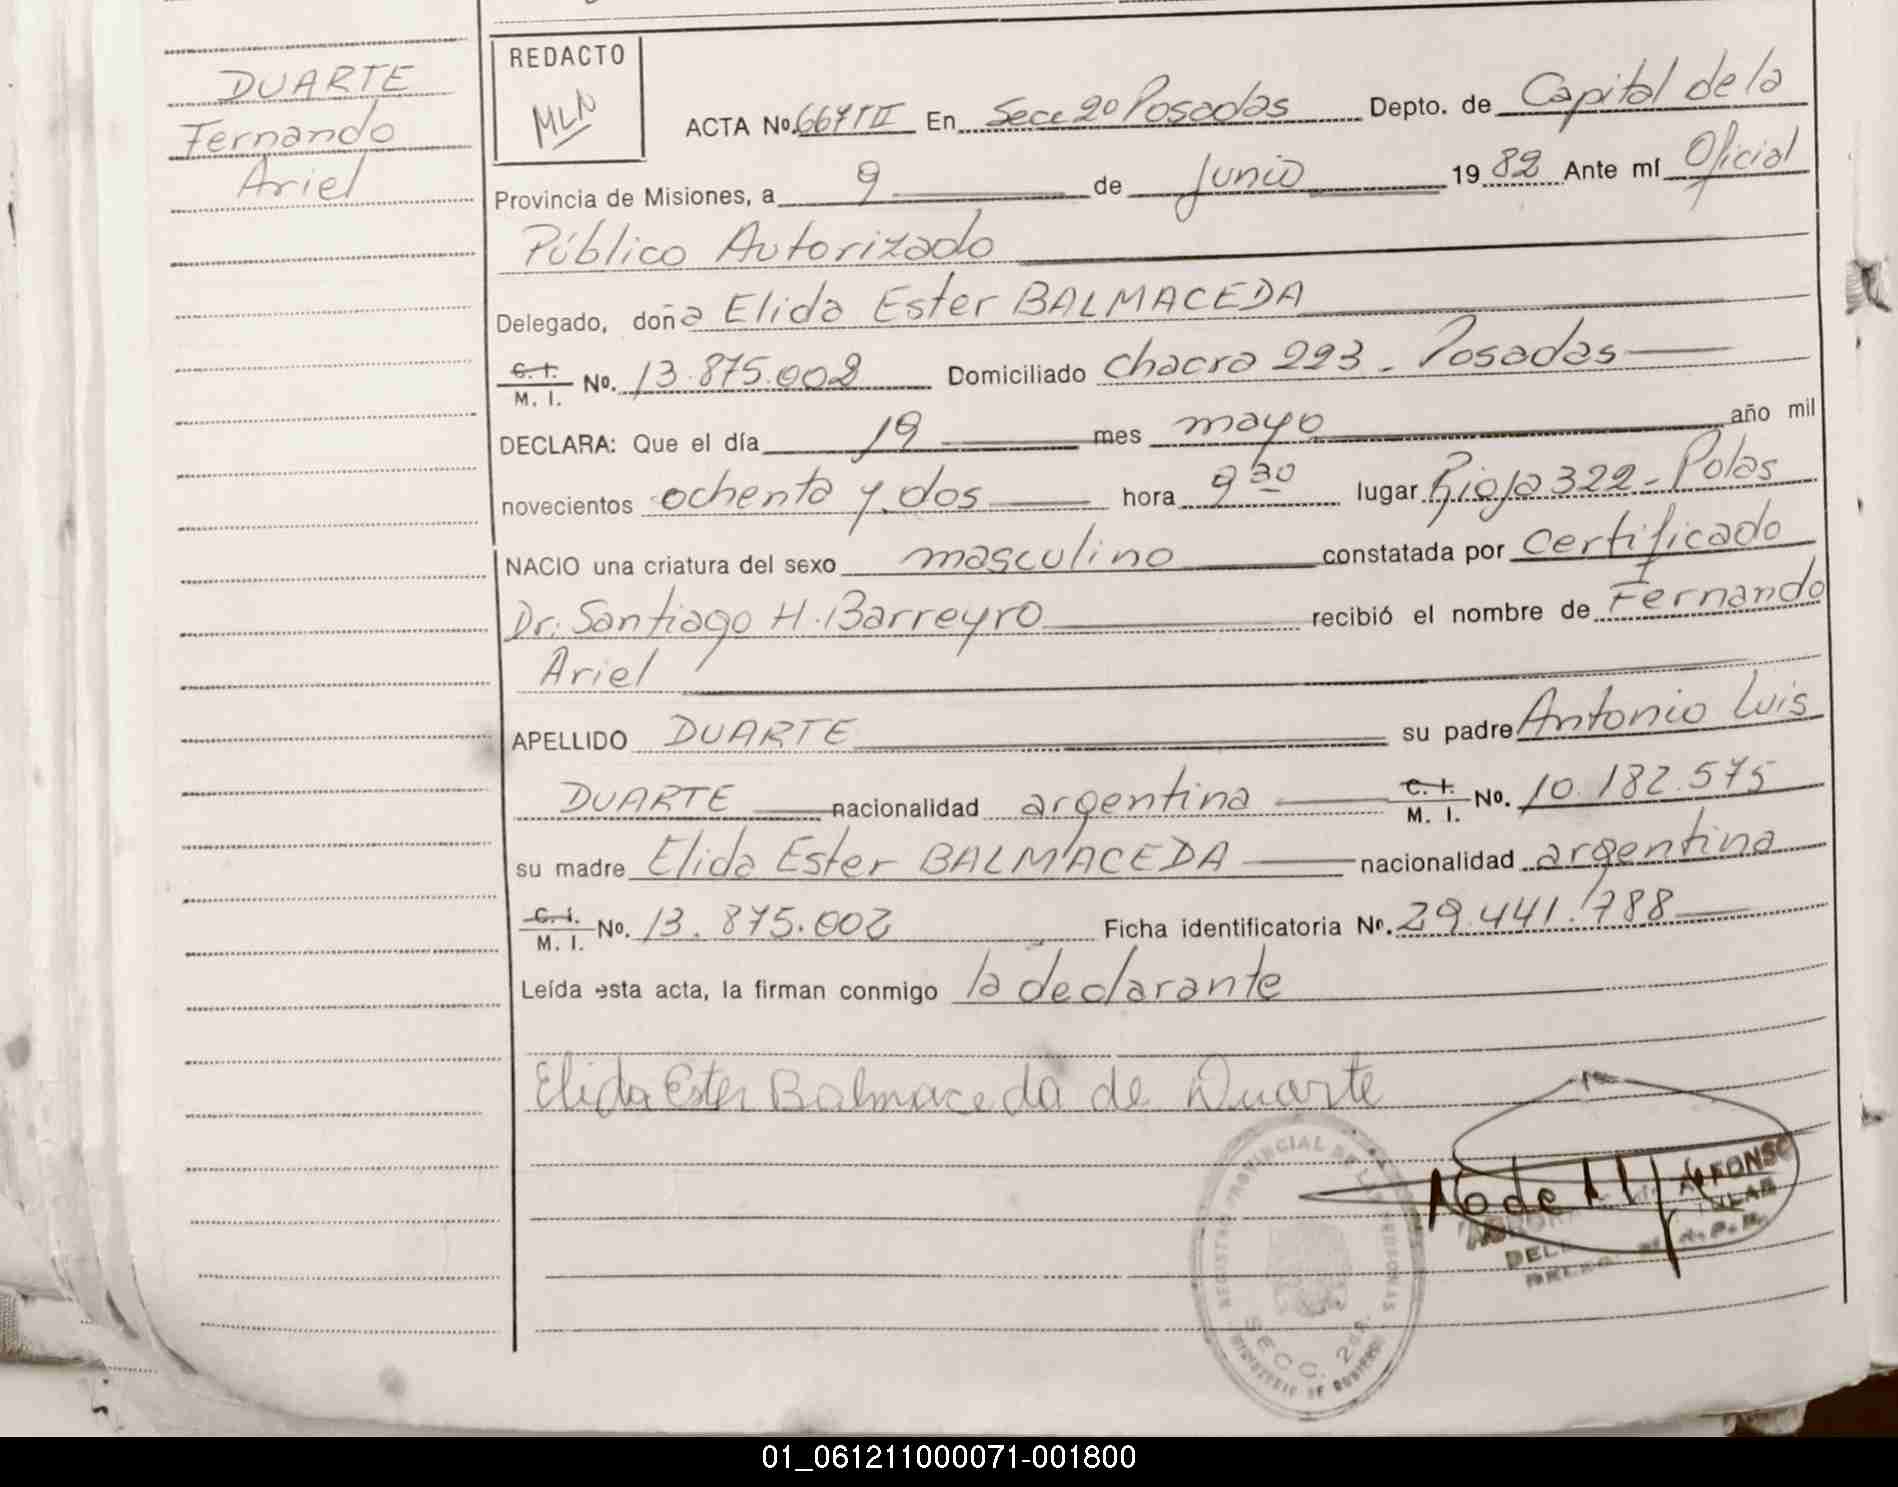 DUARTE
Fernando
Ariel
REDACTO
MLN
ACTA No. 667 TII En Secc 2º Posadas Depto. de Capital de la
Provincia de Misiones, a 9 de Junio 1982 Ante mí Oficial
Público Autorizado
Delegado, doña Elida Ester BALMACEDA
C. I. M. I. No. 13.875.002 Domiciliado Chacra 223 - Posadas
DECLARA: Que el día 19 mes mayo año mil
novecientos ochenta y dos hora 9 30 lugar Rioja 322 - Pdas
NACIO una criatura del sexo masculino constatada por Certificado
Dr. Santiago H. Barreyro recibió el nombre de Fernando
Ariel
APELLIDO DUARTE su padre Antonio Luis
DUARTE nacionalidad argentina C. I. M. I. No. 10.182.575
su madre Elida Ester BALMACEDA nacionalidad argentina
C. I. M. I. No. 13.875.002 Ficha identificatoria No. 29.441.788
Leída esta acta, la firman conmigo la declarante
Elida Ester Balmaceda de Duarte
REGISTRO PROVINCIAL DE LAS PERSONAS
SECC. 2da.
MINISTERIO DE GOBIERNO
ALFONSO
TITULAR
01_061211000071-001800